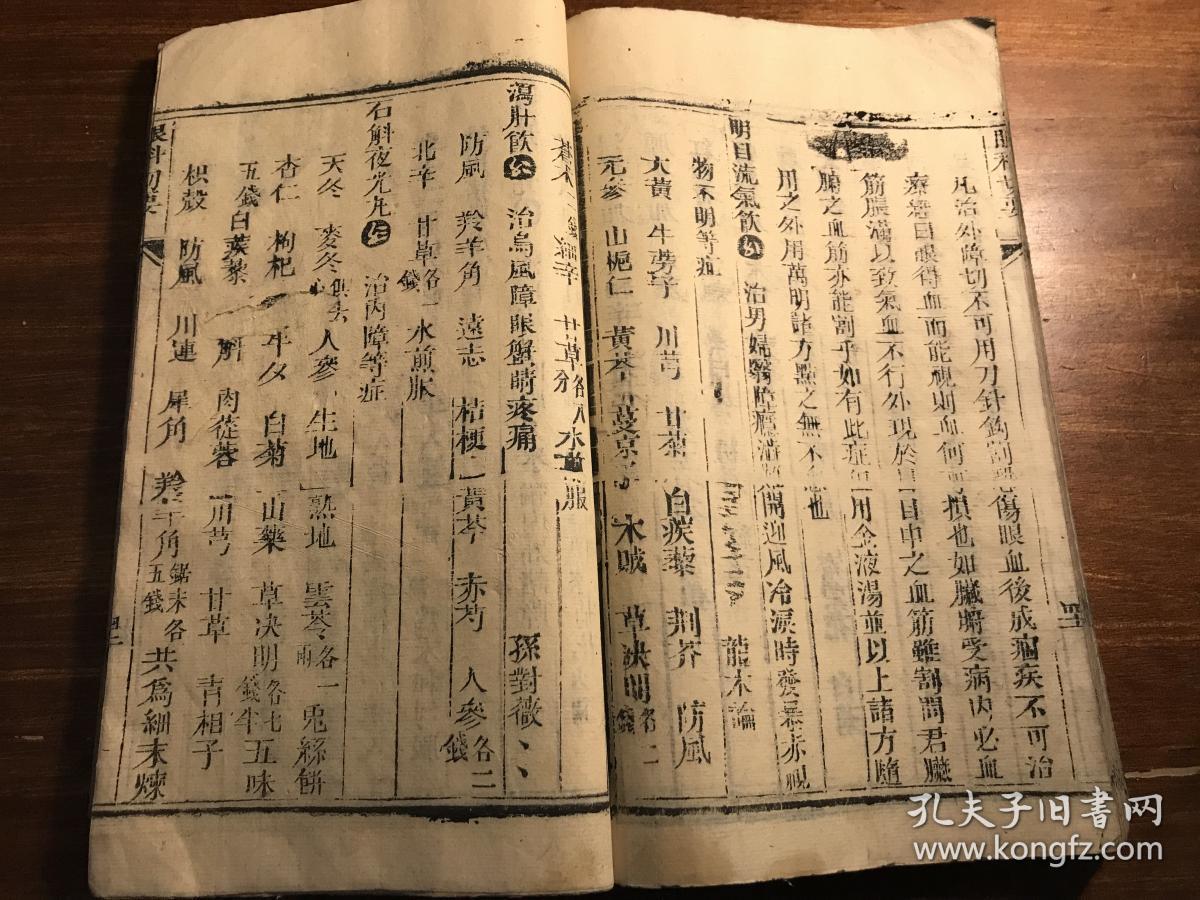 凡治外障切不可用刀針鈎割傷眼血後成痼疾不可治
療書曰眼得血而能視則血何損也如臟腑受病内必血
筋脹滿以致氣血不行外現於目中之血筋雖割問君臟
腑之血筋亦能割乎如有此症用金液湯並以上諸方隨
用之外用萬明諸方點之無不
也
明目流氣飲
治男婦翳障
開迎風冷淚時發暴赤視
物不明等症
龍木論
大黃 牛蒡子 川芎 甘菊 白疾藜 荆芥 防風
元參 山梔仁 黃芩 蔓京子 木賊 草決明各二錢
蒼术 細辛 甘草各八分 水煎服
瀉肝飲 治烏風障眼蟹睛疼痛 孫對薇
防風 羚羊角 遠志 桔梗 黃芩 赤芍 人參各二錢
北辛 甘草各一錢 水煎服
石斛夜光丸 治内障等症
天冬 麥冬俱去心 人參 生地 熟地 雲苓各一兩 兎絲餅
杏仁 枸杞 牛夕 白菊 山藥 草决明各七錢半 五味
五錢 白蒺藜 斛 肉蓯蓉 川芎 甘草 青相子
枳殼 防風 川連 犀角 羚羊角鋸末各五錢 共爲細末煉
眼科切要
孔夫子旧书网
www.kongfz.com